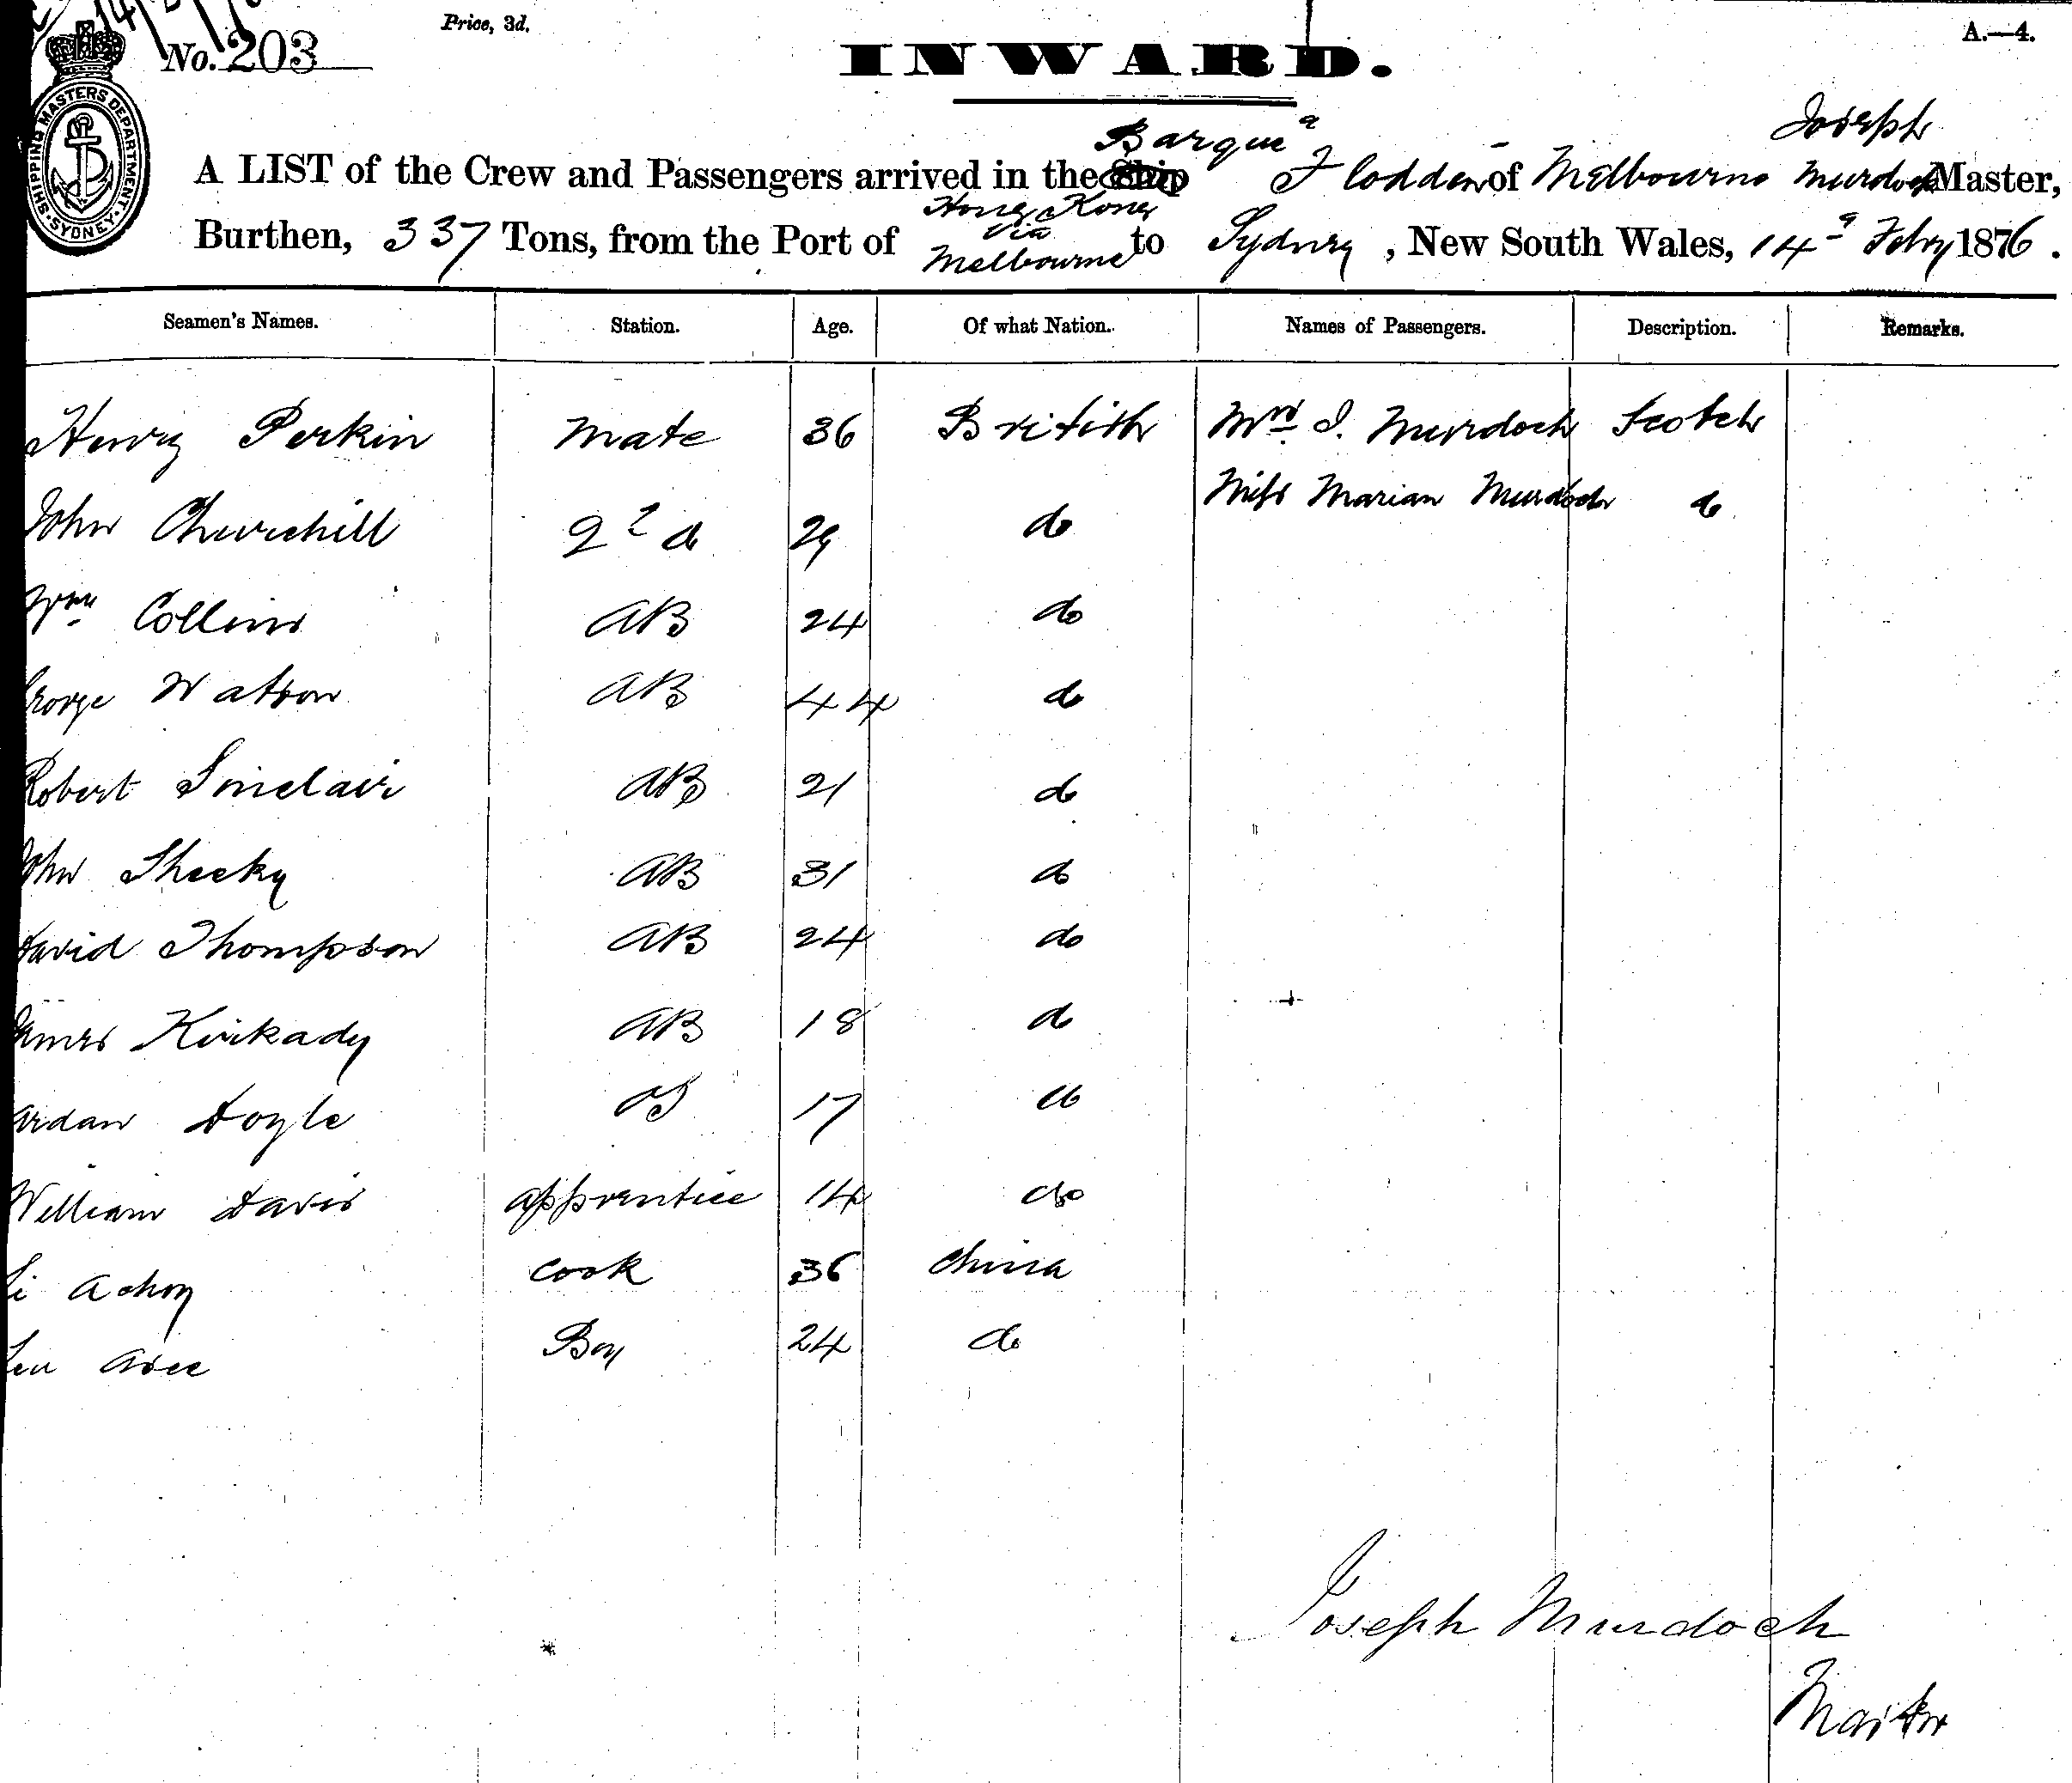 No. 203
Price, 3d.
A.—4.
INWARD.
SHIPPING MASTERS DEPARTMENT. SYDNEY
Barque Joseph
A LIST of the Crew and Passengers arrived in the Ship Flodden of Melbourne Murdoch Master,
Hong Kong
via
Burthen, 337 Tons, from the Port of Melbourne to Sydney, New South Wales, 14 Feby 1876.
Seamen's Names. Station. Age. Of what Nation. Names of Passengers. Description. Remarks.
Henry Perkin Mate 36 British Mrs J. Murdoch Scotch
Miss Marian Murdoch do
John Churchill 2 do 29 do
Wm Collins AB 24 do
George Watson AB 44 do
Robert Sinclair AB 21 do
John Sheeky AB 31 do
David Thompson AB 24 do
James Kirkady AB 18 do
Doyle OS 17 do
William Davis apprentice 14 do
cook 36 China
Boy 24 do
Joseph Murdoch
Master